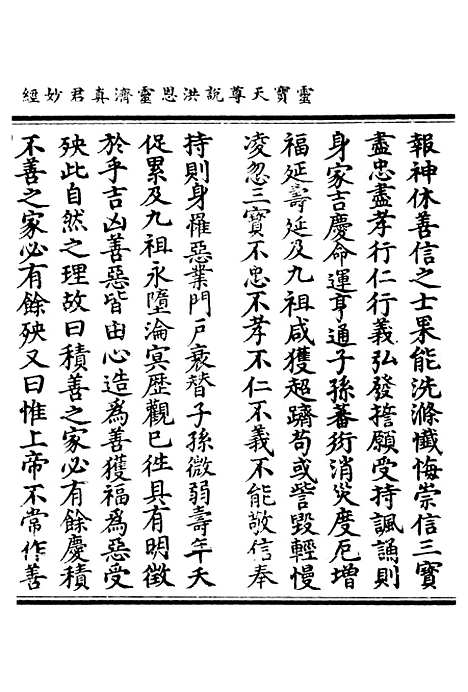 靈寶天尊說洪恩靈濟真君妙經
報神休善信之士果能洗滌懺悔崇信三寶
盡忠盡孝行仁行義弘發擔願受持諷誦則
身家吉慶命運亨通子孫蕃衍消災度厄增
福延壽延及九祖咸獲超躋苟或訾毀輕慢
凌忽三寶不忠不孝不仁不義不能敬信奉
持則身罹惡業門戶衰替子孫微弱壽年夭
促累及九祖永墮淪冥歷觀已往具有明徵
於乎吉凶善惡皆由心造為善獲福為惡受
殃此自然之理故曰積善之家必有餘慶積
不善之家必有餘殃又曰惟上帝不常作善